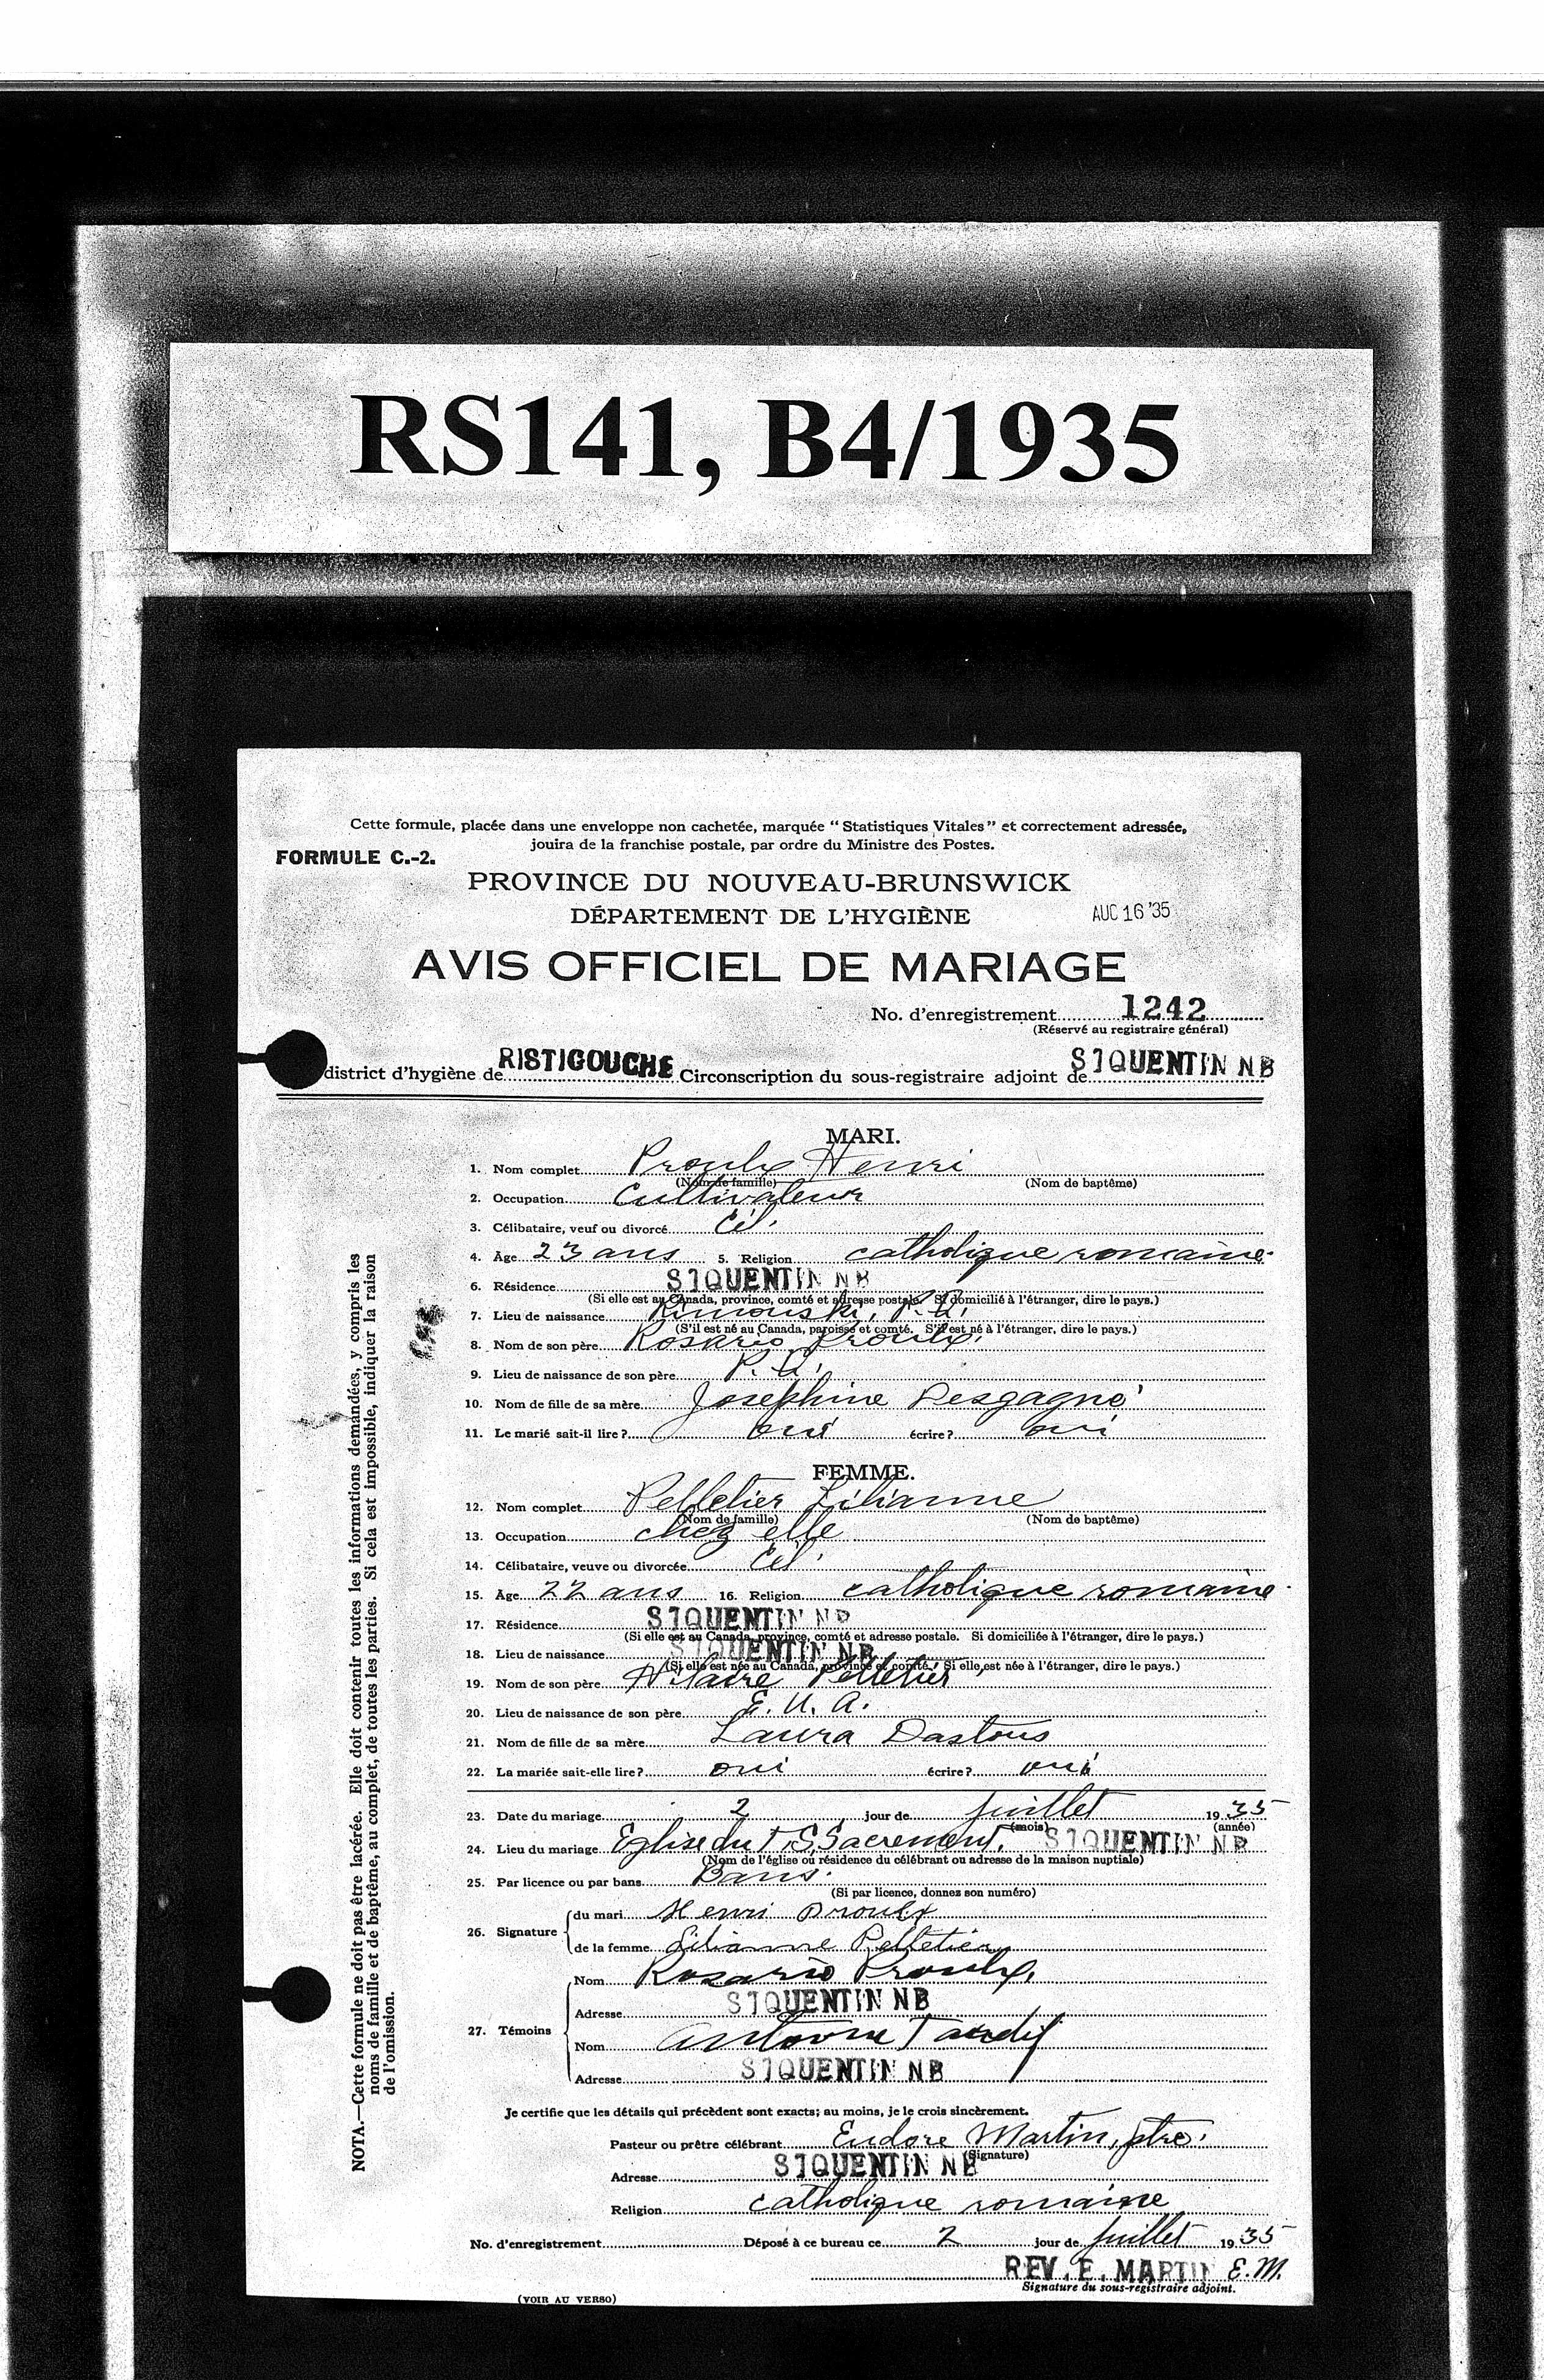 RS141, B4/1935
Cette formule, placée dans une enveloppe non cachetée, marquée “ Statistiques Vitales ” et correctement adressée,
jouira de la franchise postale, par ordre du Ministre des Postes.
FORMULE C.-2.
PROVINCE DU NOUVEAU-BRUNSWICK
DÉPARTEMENT DE L'HYGIÈNE
AUG 16 '35
AVIS OFFICIEL DE MARIAGE
No. d'enregistrement 1242
(Réservé au registraire général)
district d'hygiène de RISTIGOUCHE Circonscription du sous-registraire adjoint de ST QUENTIN NB
MARI.
1. Nom complet Proulx Henri
(Nom de famille) (Nom de baptême)
2. Occupation Cultivateur
3. Célibataire, veuf ou divorcé Cél.
4. Âge 23 ans 5. Religion catholique romaine
6. Résidence ST QUENTIN NB
(Si elle est au Canada, province, comté et adresse postale. Si domicilié à l'étranger, dire le pays.)
7. Lieu de naissance Rimouski, P.Q.
(S'il est né au Canada, paroisse et comté. S'il est né à l'étranger, dire le pays.)
8. Nom de son père Rosario Proulx.
9. Lieu de naissance de son père P.Q.
10. Nom de fille de sa mère Josephine Desgagné
11. Le marié sait-il lire? oui écrire? oui
FEMME.
12. Nom complet Pelletier Lilianne
(Nom de famille) (Nom de baptême)
13. Occupation chez elle
14. Célibataire, veuve ou divorcée Cél.
15. Âge 22 ans 16. Religion catholique romaine
17. Résidence ST QUENTIN NB
(Si elle est au Canada, province, comté et adresse postale. Si domiciliée à l'étranger, dire le pays.)
18. Lieu de naissance ST QUENTIN NB
(Si elle est née au Canada, province et comté. Si elle est née à l'étranger, dire le pays.)
19. Nom de son père Hilaire Pelletier
20. Lieu de naissance de son père E.U.A.
21. Nom de fille de sa mère Laura Dastous
22. La mariée sait-elle lire? oui écrire? oui
23. Date du mariage 2 jour de juillet 1935
(mois) (année)
24. Lieu du mariage Eglise du T.S. Sacrement, ST QUENTIN NB
(Nom de l'église ou résidence du célébrant ou adresse de la maison nuptiale)
25. Par licence ou par bans Bans.
(Si par licence, donnez son numéro)
26. Signature du mari Henri Proulx
de la femme Lilianne Pelletier
27. Témoins Nom Rosario Proulx,
Adresse ST QUENTIN NB
Nom Antoine Tardif
Adresse ST QUENTIN NB
Je certifie que les détails qui précèdent sont exacts; au moins, je le crois sincèrement.
Pasteur ou prêtre célébrant Eudore Martin, ptre.
(Signature)
Adresse ST QUENTIN NB
Religion catholique romaine
No. d'enregistrement Déposé à ce bureau ce 2 jour de juillet 1935
REV. E. MARTIN E.M.
Signature du sous-registraire adjoint.
(VOIR AU VERSO)
NOTA.—Cette formule ne doit pas être lacérée. Elle doit contenir toutes les informations demandées, y compris les
noms de famille et de baptême, au complet, de toutes les parties. Si cela est impossible, indiquer la raison
de l'omission.